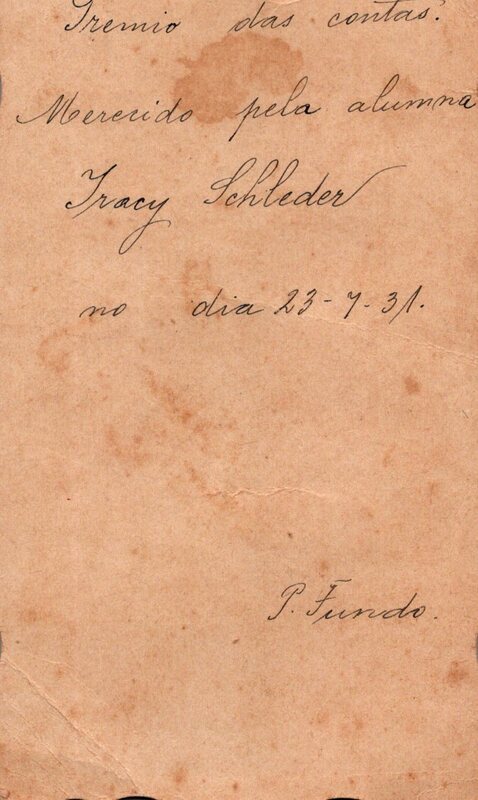 Premio das contas.
Merecido pela alumna
Iracy Schleder
no dia 23-7-31.
P. Fundo.